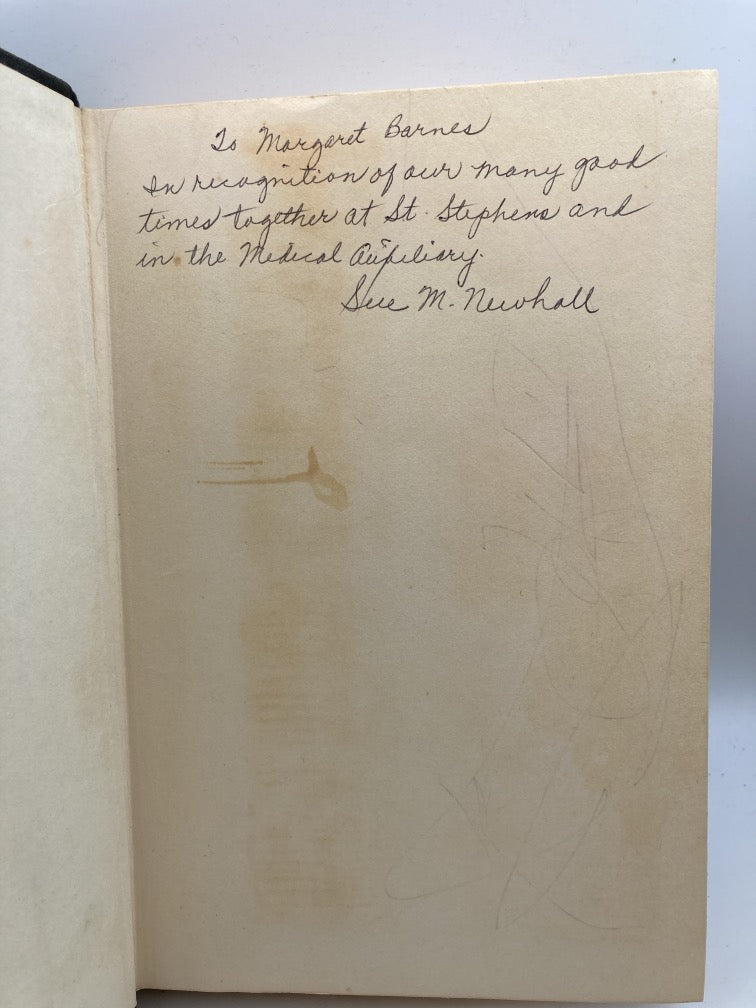 To Margaret Barnes
In recognition of our many good
times together at St. Stephens and
in the Medical Auxiliary.
Sue M. Newhall